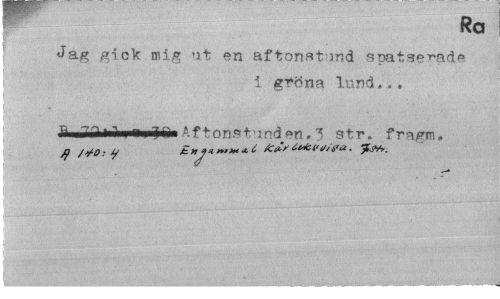 Ra
Jag gick mig ut en aftonstund spatserade
i gröna lund...
B 72:1, s.38 Aftonstunden.3 str. fragm.
A 140:4 En gammal kärleksvisa. 7 str.